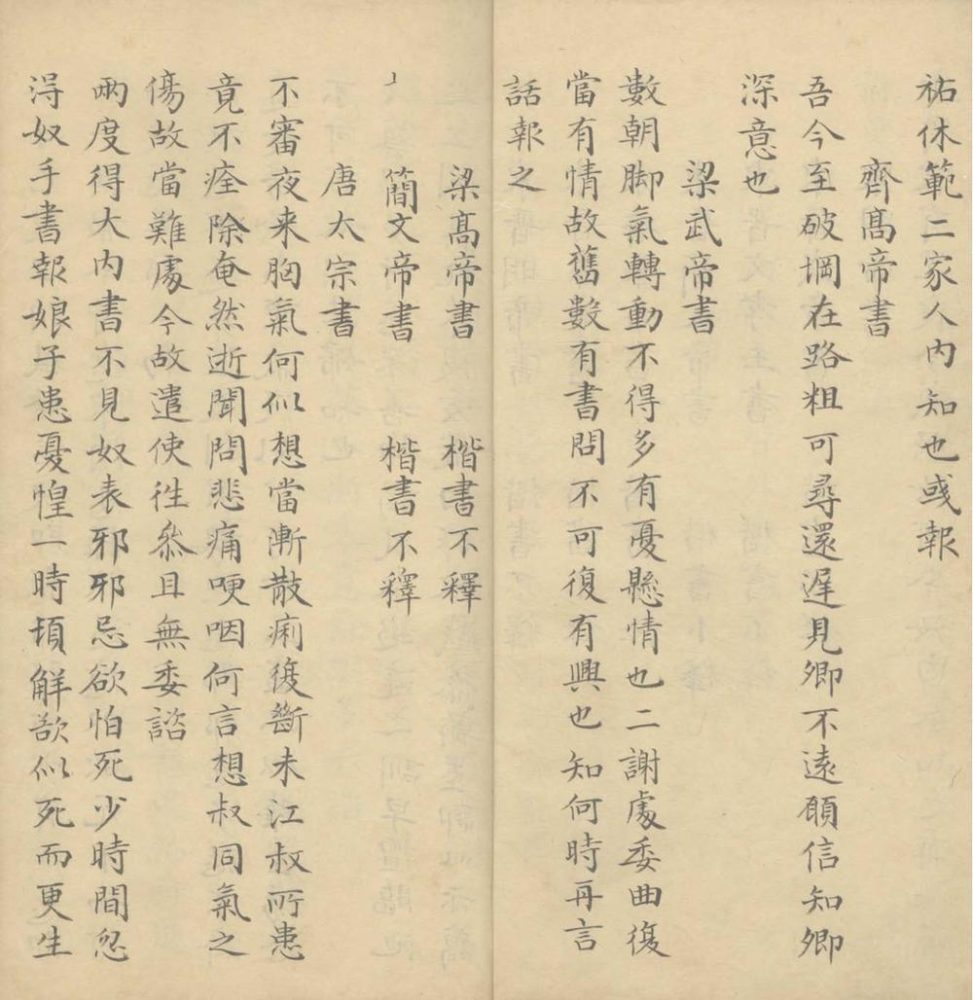 祐休範二家人內知也或報
齊髙帝書
吾今至破堈在路粗可尋還遲見卿不遠願信知卿
深意也
梁武帝書
數朝脚氣轉動不得多有憂懸情也二謝處委曲復
當有情故舊數有書問不可復有興也知何時再言
話報之
梁髙帝書 楷書不釋
簡文帝書 楷書不釋
唐太宗書
不審夜来胸氣何似想當漸散痢復斷未江叔所患
竟不痊除奄然逝聞問悲痛哽咽何言想叔同氣之
傷故當難處今故遣使徃叅且無委諮
兩度得大內書不見奴表邪邪忌欲怕死少時間忽
得奴手書報娘子患憂惶一時頓解欲似死而更生